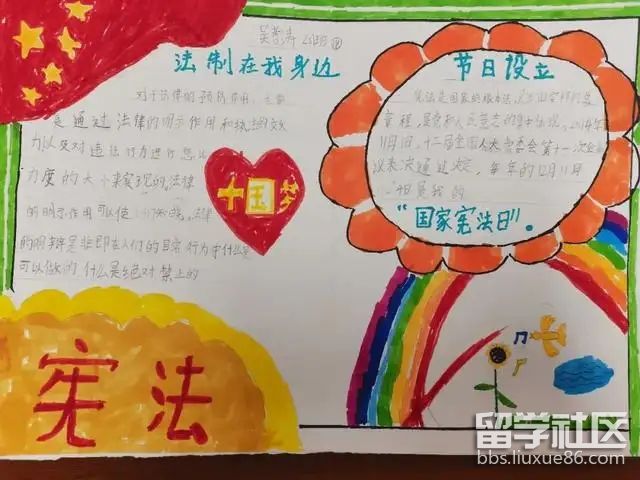 法制在我身边
对于法律的预防作用，主要
是通过法律的明示作用和执法的效
力以及对违法行为进行惩
力度的大小来实现的。法律
的明示作用可以使
的明辨是非即在人们的日常行为中什么是
可以做的 什么是绝对禁上的
中国梦
节日设立
宪法是国家的根本法，
章程，是党和人民意志的集中体现。2014年
11月1日，十二届全国人大常委会第十一次会
议表决通过决定，每年的12月
“国家宪法日”。
宪法
留学社区
bbs.liuxue86.com